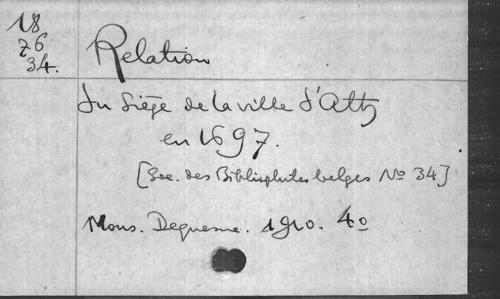 18
76
34.
Relation
du Siège de la ville d'Ath
en 1697.
[Soc. des Bibliophiles belges No 34]
Mons. Dequesne. 1910. 4o